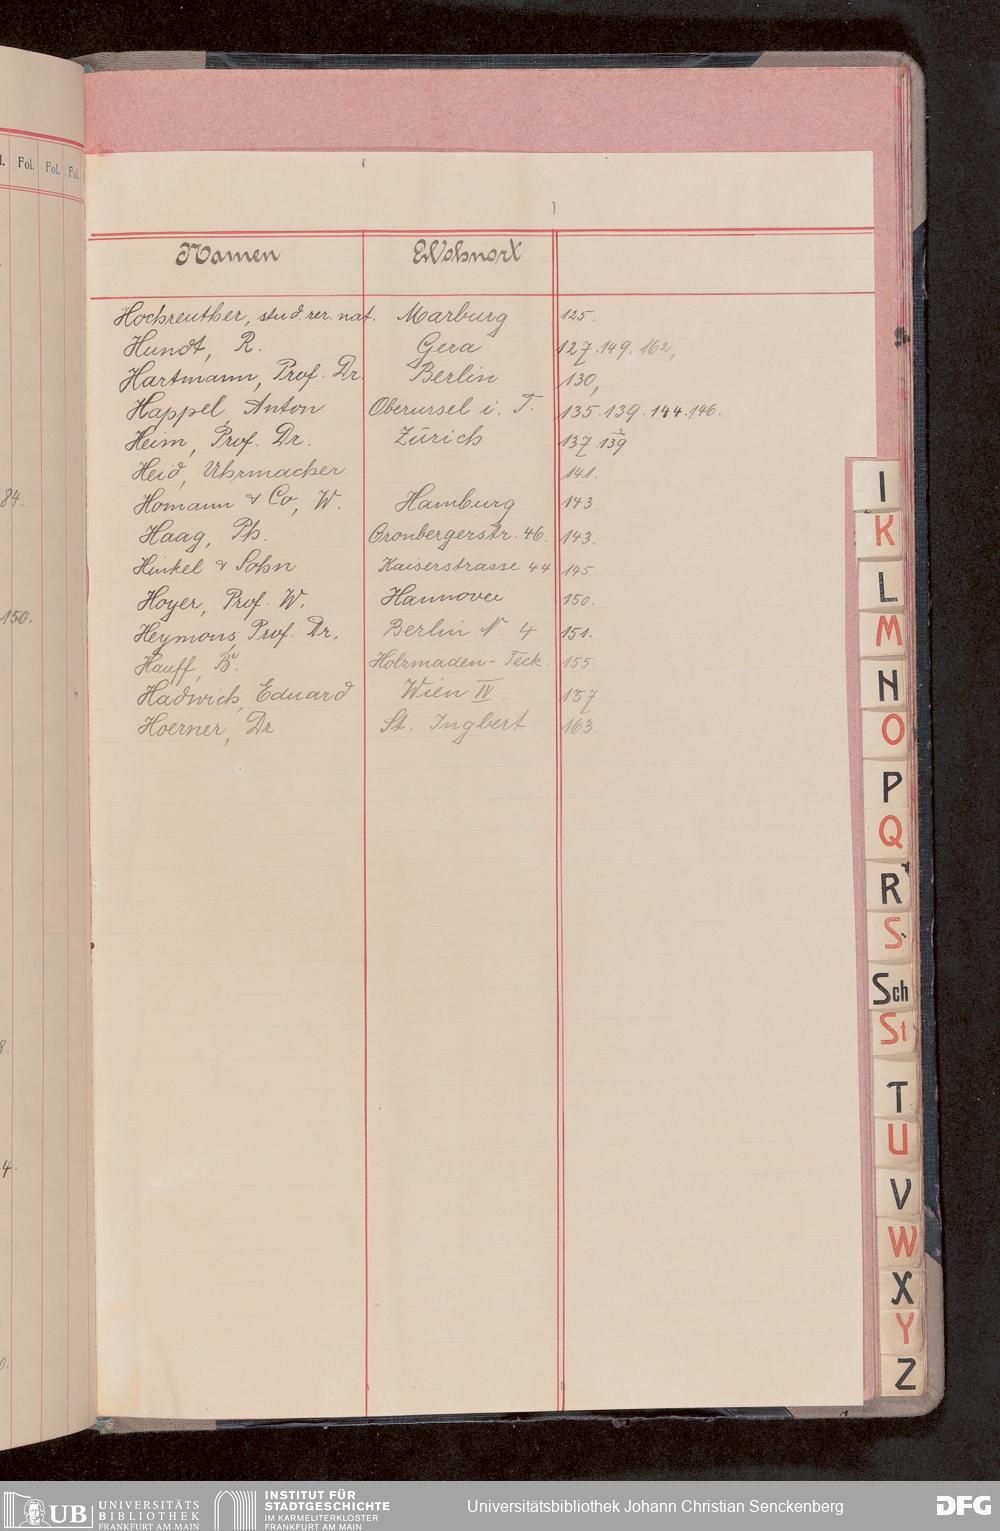 l. Fol. Fol. Fol.
Namen Wohnort
Hochreuther, stud. rer. nat. Marburg 125.
Hundt, R. Gera 127. 149. 162,
Hartmann, Prof. Dr. Berlin 130,
Happel, Anton Oberursel i. T. 135. 139. 144. 146.
Heim, Prof. Dr. Zürich 137. 139
Heid, Uhrmacher 141.
84.
Homann & Co, W. Hamburg 143.
Haag, Ph. Cronbergerstr. 46. 143.
Hinkel & Sohn Kaiserstrasse 44 145.
Hoyer, Prof. W. Hannover 150.
150.
Heymons, Prof. Dr. Berlin N. 4 151.
Hauff, Holzmaden-Teck. 155.
Hadwich, Eduard Wien IV. 157.
Hoerner, Dr. St. Ingbert 163.
8.
4.
0.
I
K
L
M
N
O
P
Q
R
S
Sch
St
T
U
V
W
X
Y
Z
UB UNIVERSITÄTS
BIBLIOTHEK
FRANKFURT AM MAIN
INSTITUT FÜR
STADTGESCHICHTE
IM KARMELITERKLOSTER
FRANKFURT AM MAIN
Universitätsbibliothek Johann Christian Senckenberg
DFG